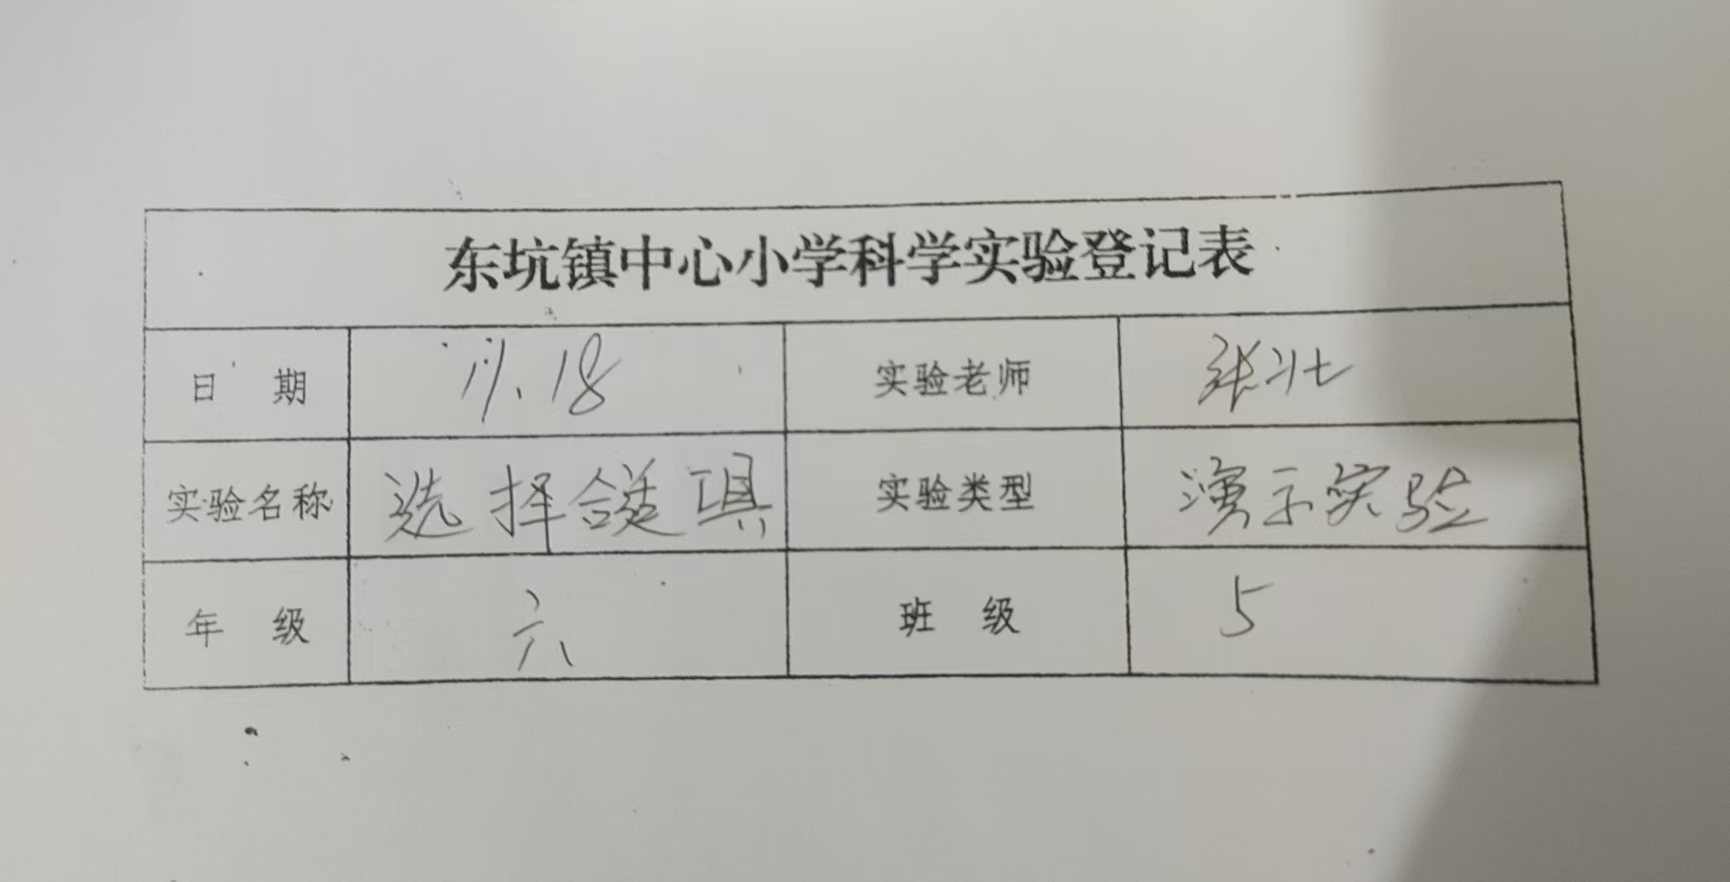 东坑镇中心小学科学实验登记表
日 期 11.18 实验老师 张壮
实验名称 选择合适 实验类型 演示实验
年 级 六 班 级 5